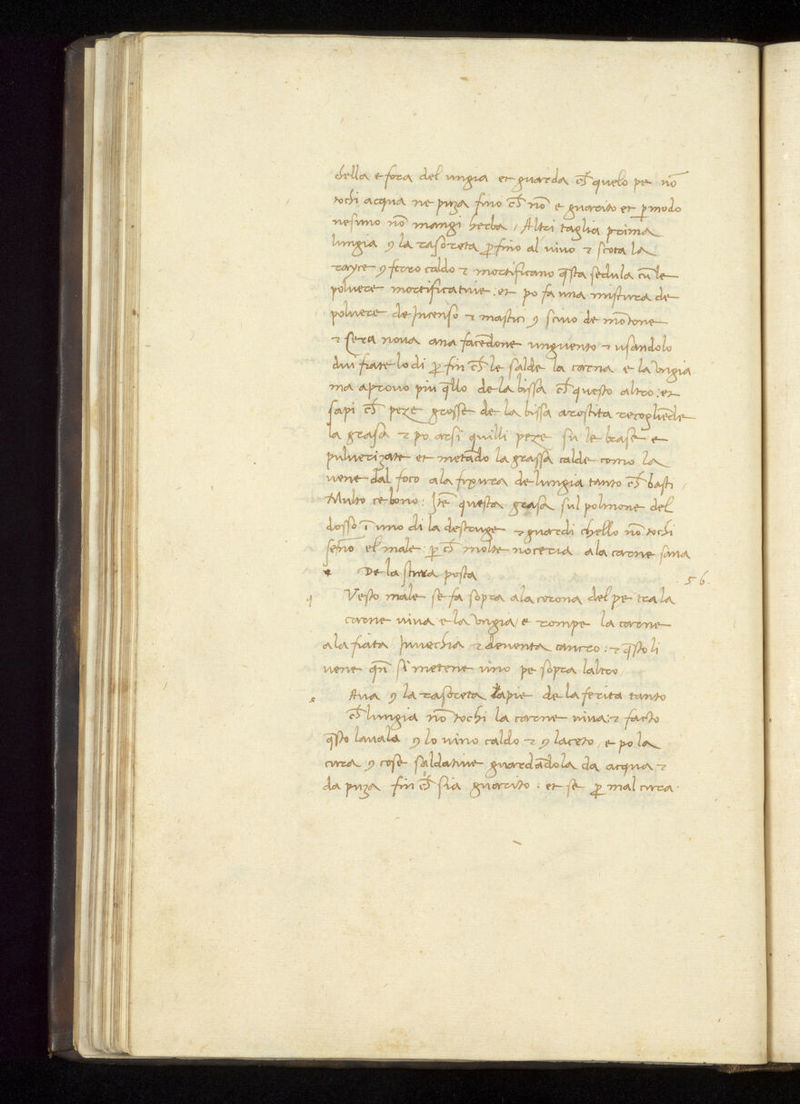 della e fora del ungia et guarda ch̄ quelo pe nō
tochi acqua ne puza fino ch̄ nō e guarito et p modo
nesuno nō mangi herba / Altri taglia prima
lungia ꝯ la rasoreta p fino al vivo ⁊ scota la
rayce ꝯ ferro caldo ⁊ mortificano q̄sta sedula cū le
polvere mortificative : et po fa una mistura de
polvere de Incenso ⁊ mastici ꝯ sivo de mōtone
⁊ Cera nova ana facēdone unguento ⁊ usandolo
due fiate lo di p fin ch̄ le salde la carna e la Ungia
ma aprovo piu q̄llo de la bissa ch̄ questo altro : et
sapi ch̄ peze grosse de la bissa arostita recogliēde
la grasa ⁊ po arsi quilli peze su le brase e
pulverizate et metādo la grassa calde como la
vene dal foco a la fixura de lungia tanto ch̄ basti /
Multo e bono : Itē questa grasa sul polmone del
dosso ī uno di la destruge ⁊ guardi chello nō tochi
senō el male p ch̄ molte noceria a la carne sana
De la supra posta
56.
q Vesto male se fa sopra a la corona del pe tra la
carne viva e la Ungia / e rompe la carne
a la fiata Invechia ⁊ deventa cancro : ⁊ q̄sto li
vene qn̄ si metene uno pe sopra laltro /
c Ava ꝯ la rasoreta lapie de la ferita tanto
ch̄ lungia nō tochi la carne viva : ⁊ facto
q̄sto lavala ꝯ lo vino caldo ⁊ ꝯ laceto / e po la
cura ꝯ cose saldative guardādola da acqua ⁊
da puza fin ch̄ sia guarito : et se p mal cura